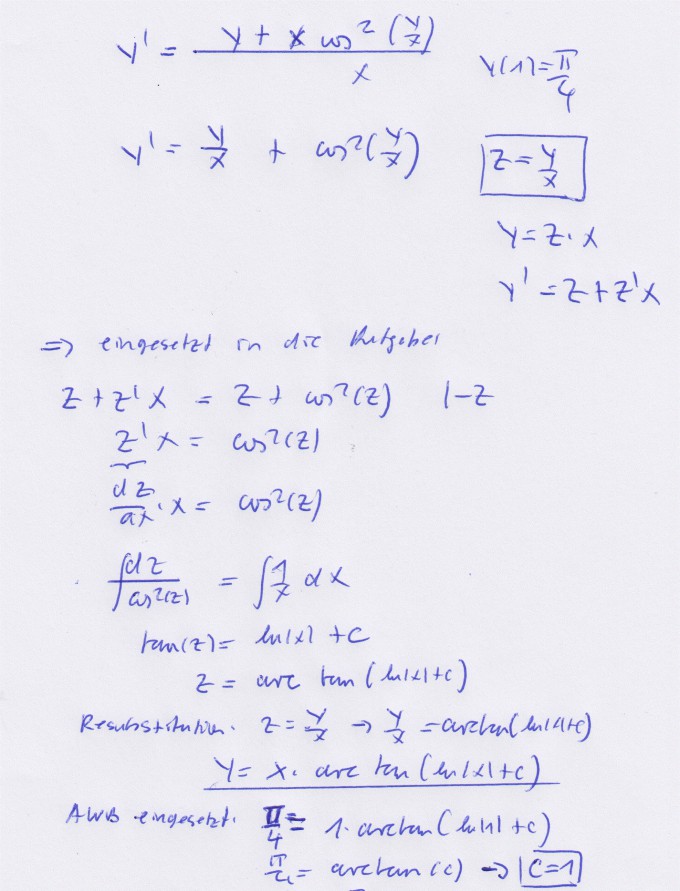 y' = (y + x cos²(y/x)) / x
y(1) = π/4
y' = y/x + cos²(y/x)
z = y/x
y = z · x
y' = z + z'x
=> eingesetzt in die Aufgabe:
z + z'x = z + cos²(z) |-z
z'x = cos²(z)
dz/dx · x = cos²(z)
∫ dz/cos²(z) = ∫ 1/x dx
tan(z) = ln|x| + c
z = arc tan (ln|x|+c)
Resubstitution: z = y/x → y/x = arctan(ln|x|+c)
y = x · arc tan (ln|x|+c)
AWB eingesetzt: π/4 = 1 · arctan (ln|1| + c)
π/4 = arctan (c) → C=1